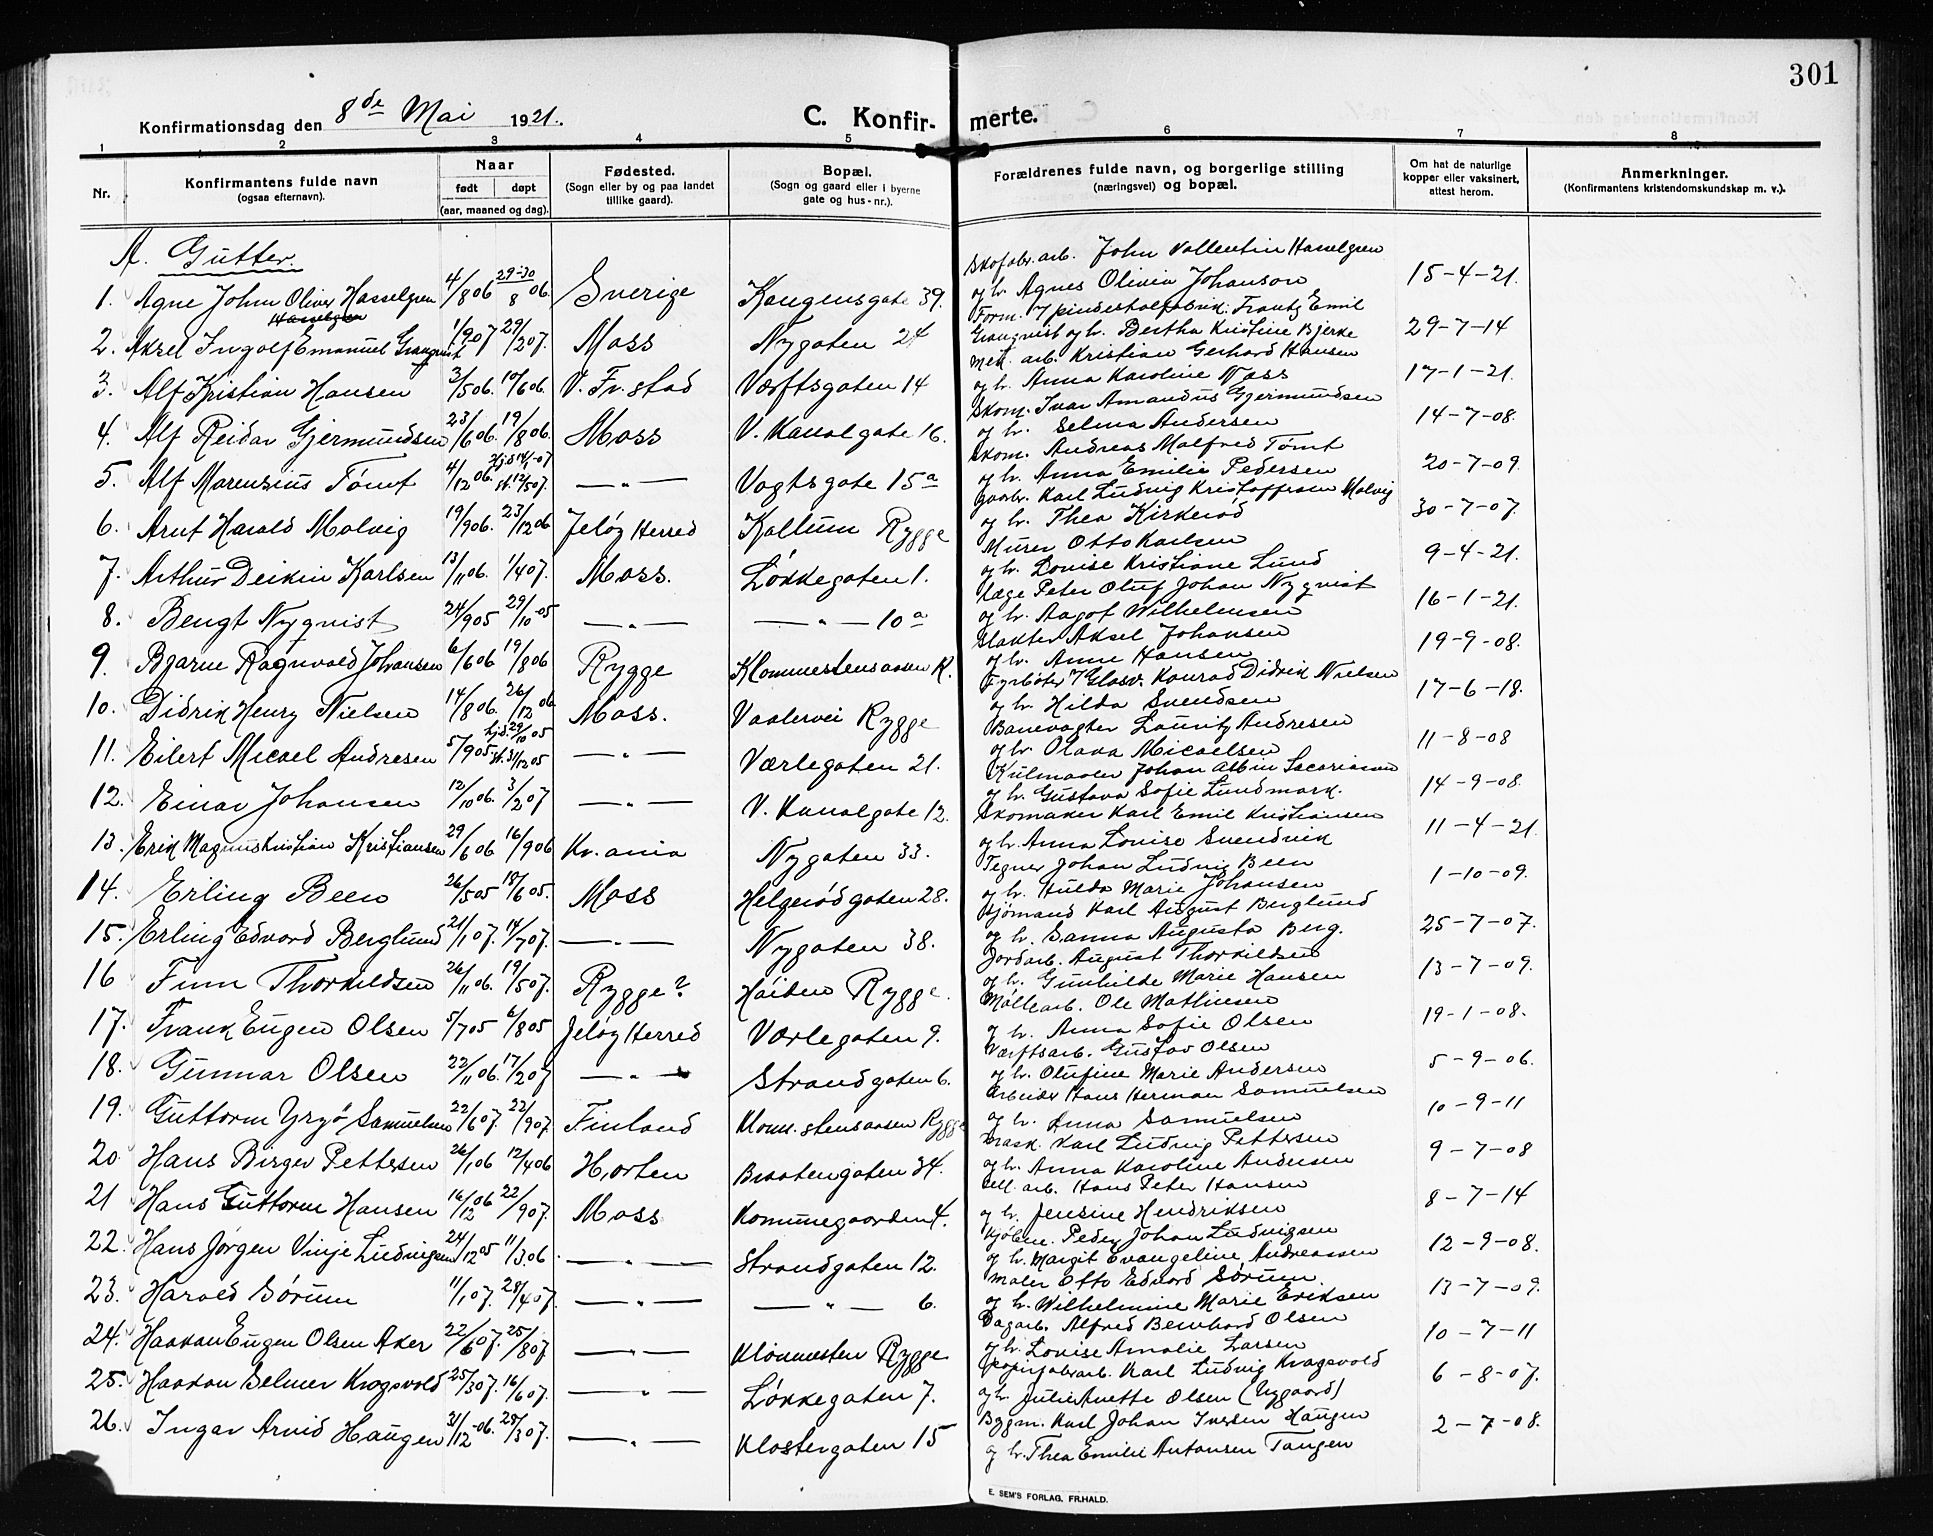 301
Konfirmationsdag den 8de Mai 1921.
C. Konfir- merte.
1 2 3 4 5 6 7 8
Nr.
Konfirmantens fulde navn (ogsaa efternavn).
Naar født døpt (aar, maaned og dag).
Fødested. (Sogn eller by og paa landet tillike gaard).
Bopæl. (Sogn og gaard eller i byerne gate og hus-nr.).
Forældrenes fulde navn, og borgerlige stilling (næringsvei) og bopæl.
Om hat de naturlige kopper eller vaksinert, attest herom.
Anmerkninger. (Konfirmantens kristendomskundskap m. v.).
A. Gutter.
1. Agne John Oliver Hasselgren 4/8 06 29-30/8 06. Sverige Kongensgate 39. Skofabr. arb. John Vallentin Hasselgren og h. Agnes Olivia Johanson 15-4-21.
2. Aksel Ingolf Emanuel Granqvist 1/9 07 29/2 07. Moss Nygaten 24 Form. Frantz Emil Granqvist og h. Bertha Kristine Bjerke 29-7-14
3. Alf Kristian Hansen 3/5 06. 10/6 06. V. Fr.stad Værftsgaten 14 Mek. arb. Kristian Gerhard Hansen og h. Anna Karoline Næss 17-1-21.
4. Alf Reidar Gjermundsen 23/6 06. 19/8 06. Moss V. Kanalgate 16. Skom. Ivar Amandus Gjermundsen og h. Selma Andersen 14-7-08.
5. Alf Marensius Tømt 4/12 06. Hjd 14/1-07 st. 12/5 07. —„— Vogtsgate 15a Skom. Andreas Malfred Tømt og h. Anna Emilie Pedersen 20-7-09.
6. Arnt Harald Molvig 19/9 06. 23/12 06 Jeløy Herred Kallum Rygge gaarbr. Karl Ludvig Kristoffersen Molvig og h. Thea Kirkerød 30-7-07.
7. Arthur Deikin Karlsen 13/11 06. 1/4 07. Moss. Løkkegaten 1. Murer Otto Karlsen og h. Lovise Kristiane Lund 9-4-21.
8. Bengt Nyqvist 24/9 05 29/10-05 —„— —„— 10a Læge Peter Oluf Johan Nyqvist og h. Aagot Wilhelmsen 16-1-21.
9. Bjarne Ragnvald Johansen 6/6 06 19/8 06 Rygge Klommestensaasen R. Slakter Aksel Johansen og h. Anne Hansen 19-9-08.
10. Didrik Henry Nielsen 14/8 06. 26/12 06. Moss. Vaalervei Rygge Fyrbøter v/ Glasv. Konrad Didrik Nielsen og h. Hilda Svendsen 17-6-18.
11. Eilert Micael Andresen 5/9 05. hjd. 29/10 05 st. 31/12 05 —„— Værlegaten 21. Banevogter Lauritz Andresen og h. Olava Micaelsen 11-8-08
12. Einar Johansen 12/10 06. 3/2 07 —„— V. Kanalgate 12. Johan Albin Sacariassen og h. Gustava Sofie Lundmark. 14-9-08.
13. Erik Magnus Kristian Kristiansen 29/6 06 16/9 06 Kr.ania Nygaten 33. Skomaker Karl Emil Kristiansen og h. Anna Lovise Svendvik 11-4-21.
14. Erling Been 26/5 05 18/6 05. Moss Helgerødgaten 28. Tegner Johan Ludvig Been og h. Hulda Marie Johansen 1-10-09.
15. Erling Edvard Berglund 21/1 07. 14/7 07. —„— Nygaten 38. Sjømand Karl August Berglund og h. Sanna Augusta Berg. 25-7-07.
16 Finn Thorkildsen 26/11 06. 19/5 07. Rygge? Høiden Rygge. Jordarb. August Thorkildsen og h. Gunhilde Marie Hansen 13-7-09.
17. Frank Eugen Olsen 5/7 05 6/8 05 Jeløy Herred Værlegaten 9. Møllearb. Ole Mathisen og h. Anna Sofie Olsen 19-1-08.
18. Gunnar Olsen 22/11 06. 17/2 07 —„— Strandgaten 6. Værftsarb. Gustav Olsen og h. Olufine Marie Andersen 5-9-06.
19. Guttorm Yrjö Samuelsen 22/6 07. 22/9 07. Finland Klomm.stensaasen Rygge Arbeider Hans Herman Samuelsen og h. Anna Samuelsen 10-9-11
20 Hans Birger Pettersen 26/1 06 12/4 06 Horten Braatengaten 34. Mask. Karl Ludvig Pettersen og h. Anna Karoline Andersen 9-7-08
21 Hans Guttorm Hansen 16/12 06 22/9 07. Moss Kommunegaarden 4. Cell. arb. Hans Peter Hansen og h. Jensine Hendriksen 8-7-14
22. Hans Jørgen Vinje Ludvigsen 24/12 05 11/3 06 —„— Strandgaten 12. Kjøbm. Peder Johan Ludvigsen og h. Margit Evangeline Andreassen 12-9-08.
23. Harald Sørum 11/1 07. 28/4 07. —„— —„— 6. Maler Otto Edvard Sørum. og h. Wilhelmine Marie Eriksen 13-7-09.
24. Haakon Eugen Olsen Aker 22/6 07. 25/8 07 —„— Klommesten Rygge Dagarb. Alfred Bernhard Olsen og h. Lovise Amalie Larsen 10-7-11
25. Haakon Selmer Krogsvold 25/3 07. 16/6 07. —„— Løkkegaten 7. Papirfabrarb. Karl Ludvig Krogsvold og h. Julie Anette Olsen (Nygaard) 6-8-07.
26. Ingar Arvid Haugen 31/12-06. 28/3 07. —„— Klostergaten 15 Bygm. Karl Johan Iversen Haugen og h. Thea Emilie Antonsen Tangen 2-7-08.
E. SEM'S FORLAG, FR.HALD.